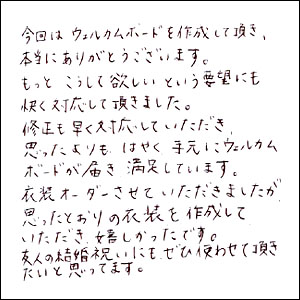 今回は ウェルカムボードを作成して頂き、
本当にありがとうございます。
もっと こうして欲しい という要望にも
快く対応して頂きました。
修正も早く対応していただき、
思ったよりも はやく 手元に ウェルカム
ボードが届き 満足しています。
衣装オーダーさせて いただきましたが
思ったとおりの衣装を作成して
いただき 嬉しかったです。
友人の結婚祝いにも ぜひ使わせて頂き
たいと思ってます。